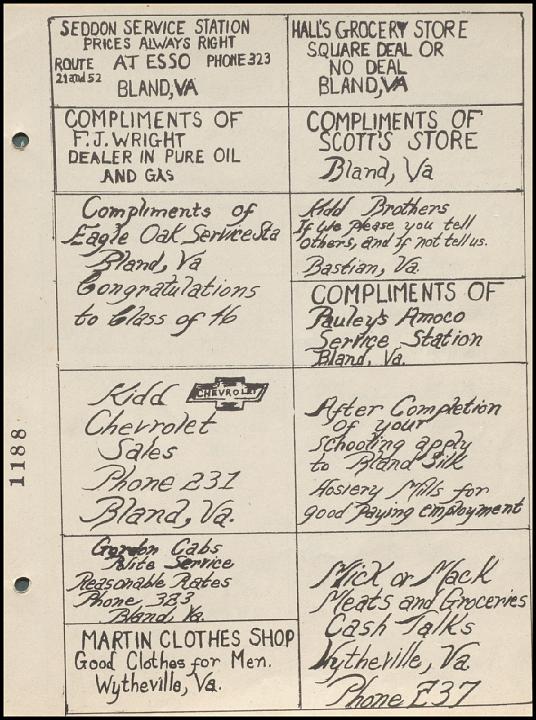 SEDDON SERVICE STATION
PRICES ALWAYS RIGHT
ROUTE 21 and 52 AT ESSO PHONE 323
BLAND, VA
HALL'S GROCERY STORE
SQUARE DEAL OR
NO DEAL
BLAND, VA
COMPLIMENTS OF
F. J. WRIGHT
DEALER IN PURE OIL
AND GAS
COMPLIMENTS OF
SCOTT'S STORE
Bland, Va
Compliments of
Eagle Oak Service Sta
Bland, Va
Congratulations
to Class of 46
Kidd Brothers
If We Please you tell
others, and if not tell us.
Bastian, Va.
COMPLIMENTS OF
Pauley's Amoco
Service Station
Bland, Va.
Kidd CHEVROLET
Chevrolet
Sales
Phone 231
Bland, Va.
After Completion
of your
schooling apply
to Bland Silk
Hosiery Mills for
good Paying employment
Gordon Cabs
Nite Service
Reasonable Rates
Phone, 323
Bland, Va.
MARTIN CLOTHES SHOP
Good Clothes for Men.
Wytheville, Va.
Mick or Mack
Meats and Groceries
Cash Talks
Wytheville, Va.
Phone 237
1188